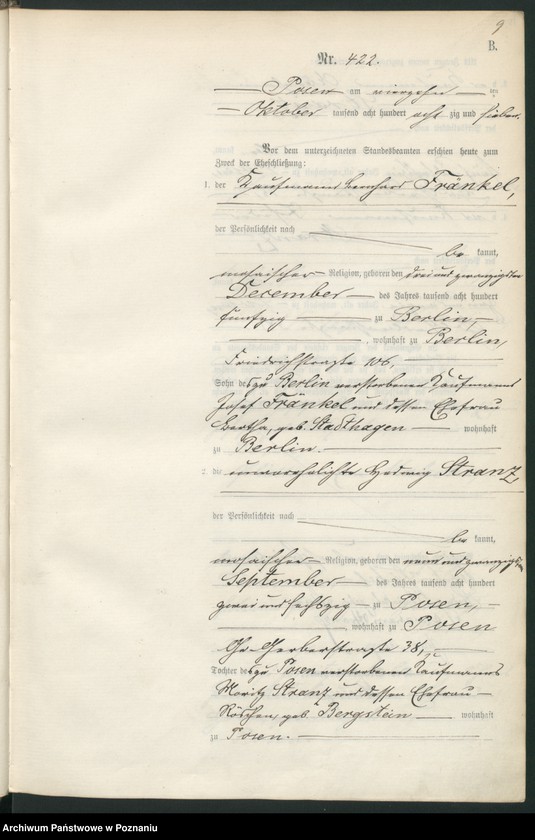 9
B.
Nr. 422.
Posen am vierzehn ten
Oktober tausend acht hundert acht zig und sieben.
Vor dem unterzeichneten Standesbeamten erschien heute zum
Zweck der Eheschließung:
1. der Kaufmann Bernhard Fränkel,
der Persönlichkeit nach
be kannt,
mosaischer Religion, geboren den drei und zwanzigsten
December des Jahres tausend acht hundert
fünfzig zu Berlin,
, wohnhaft zu Berlin,
Friedrichstraße 106,
Sohn des zu Berlin verstorbenen Kaufmanns
Josef Fränkel und dessen Ehefrau
Bertha, geb. Stadthagen wohnhaft
zu Berlin.
2. die unverehelichte Hedwig Stranz,
der Persönlichkeit nach
be kannt,
mosaischer Religion, geboren den neun und zwanzigsten
September des Jahres tausend acht hundert
zwei und sechszig zu Posen,
, wohnhaft zu Posen
Gr. Gerberstraße 38,
Tochter des zu Posen verstorbenen Kaufmanns
Moritz Stranz und dessen Ehefrau
Röschen, geb. Bergstein wohnhaft
zu Posen.
Archiwum Państwowe w Poznaniu